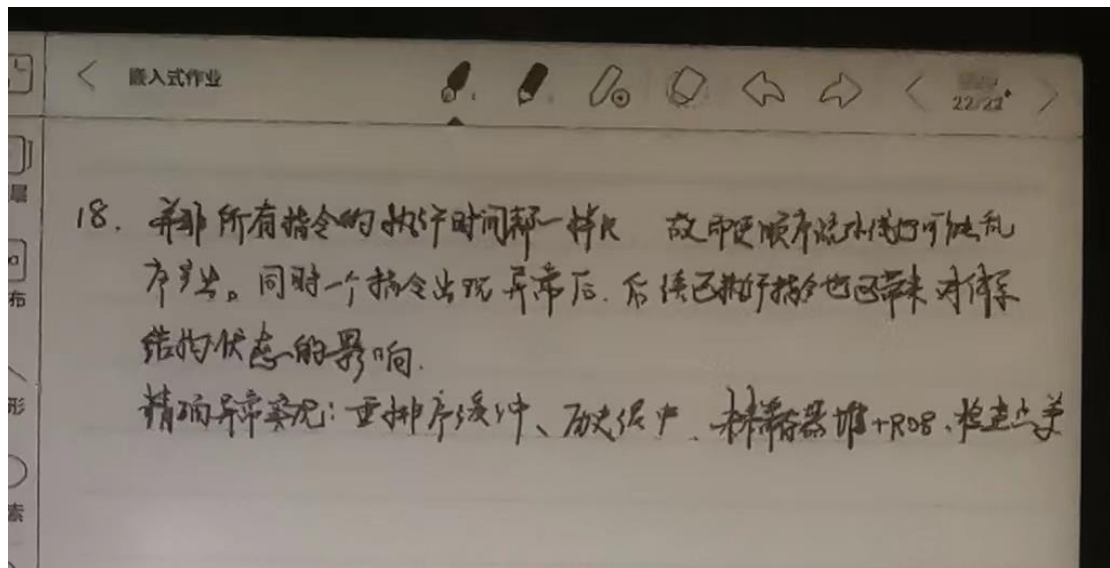 嵌入式作业
22/22
层
布
形
素
18. 并非所有指令的执行时间都一样长 故即使顺序流水线也可能乱
序写出。同时一个指令出现异常后. 后续已执行指令也已带来对体系
结构状态的影响.
精确异常实现: 重排序缓冲、历史缓冲、寄存器堆+ROB、检查点等